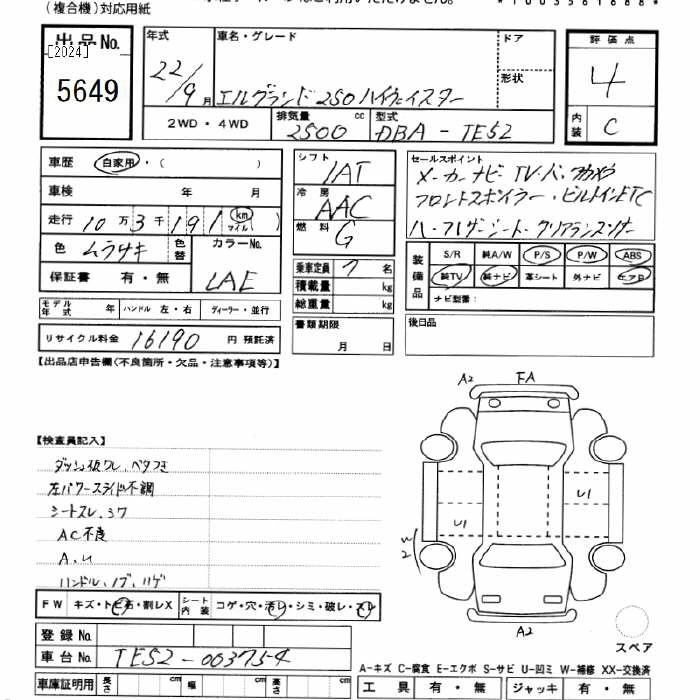 (複合機)対応用紙
出品No.
[2024]
5649
年式 22/9月
車名・グレード エルグランド250ハイウェイスター
ドア
形状
評価点 4
内装 C
2WD・4WD
排気量 2500 cc
型式 DBA-TE52
車歴 自家用・( )
車検 年 月
走行 10万3千191 km マイル( )
色 ムラサキ 色替
カラーNo. LAE
保証書 有・無
シフト IAT
冷房 AAC
燃料 G
乗車定員 7名
積載量 kg
総重量 kg
書類期限
月 日
セールスポイント
メーカーナビ TV.バックカメラ
フロントスポイラー・ビルトインETC
ハーフレザーシート・クリアランスソナー
装備品 S/R 純A/W P/S P/W ABS
純TV 純ナビ 革シート 外ナビ エアB
ナビ型番:
後日品
モデル年式 年 ハンドル 左・右 ディーラー・並行
リサイクル料金 16190 円 預託済
【出品店申告欄(不良箇所・欠品・注意事項等)】
【検査員記入】
ダッシュ板ワレ、ベタつき
左パワースライド不調
シートスレ、シワ
AC不良
A.U
ハンドル、ノブ、ハゲ
A2 FA
U1
U1
W2
A2
スペア
FW キズ・トビ石・割レX シート内装 コゲ・穴・汚レ・シミ・破レ・スレ
登録No.
車台No. TE52-003754
車庫証明用 長さ cm 幅 cm 高さ cm
A-キズ C-腐食 E-エクボ S-サビ U-凹ミ W-補修 XX-交換済
工具 有・無 ジャッキ 有・無